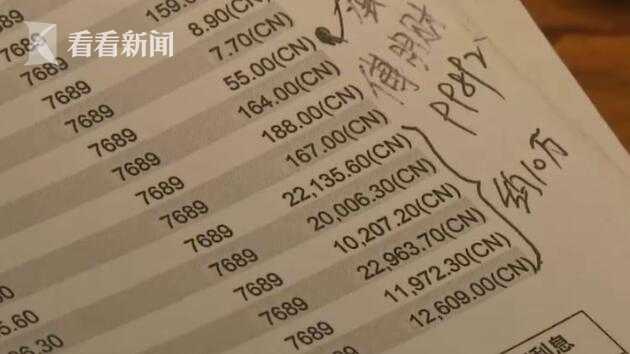 看看新闻
7689 159.0
7689 8.90(CN)
7689 7.70(CN)
7689 55.00(CN)
7689 164.00(CN)
7689 188.00(CN)
7689 167.00(CN)
7689 22,135.60(CN)
7689 20,006.30(CN)
7689 10,207.20(CN)
7689 22,963.70(CN)
7689 11,972.30(CN)
7689 12,609.00(CN)
6.60
6.30
约10万
利息